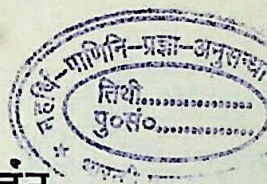 महर्षि-पाणिनि-प्रज्ञा-अनुसन्धा
तिथी..................
पु०सं०..................